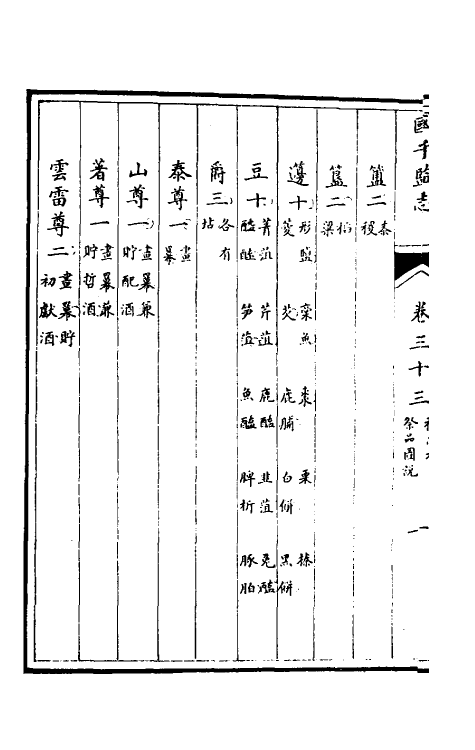 國子監志 卷三十三
祭品圖説 一
簠二 黍稷
簋二 稻粱
籩十 形鹽 菱 藁魚 芡 棗 鹿脯 栗 白餅 榛 黑餅
豆十 菁菹 醓醢 芹菹 筍菹 鹿醢 魚醢 韭菹 脾析 兔醢 豚胉
爵三 各有坫
泰尊一 畫羃
山尊一 畫羃兼貯配酒
著尊一 畫羃兼貯哲酒
雲雷尊二 畫羃貯初獻酒